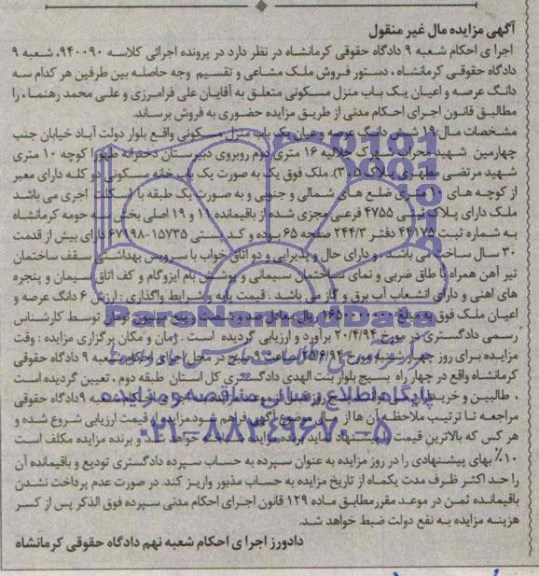 آگهی مزایده مال غیر منقول
اجرای احکام شعبه ۹ دادگاه حقوقی کرمانشاه در نظر دارد در پرونده اجرائی کلاسه ۹۴۰۰۹۰، شعبه ۹
دادگاه حقوقی کرمانشاه، دستور فروش ملک مشاعی و تقسیم وجه حاصله بین طرفین هر کدام سه
دانگ عرصه و اعیان یک باب منزل مسکونی متعلق به آقایان علی فرامرزی و علی محمد رهنما، را
مطالبق قانون اجرای احکام مدنی از طریق مزایده حضوری به فروش برساند.
مشخصات مال: دانگ عرصه و عیان یک باب منزل مسکونی واقع بلوار دولت آباد خیابان جنب
چهارمین شهید محراب شهرک ۱۶ متری دوم روبروی دبیرستان دخترانه کوچه ۱۰ متری
شهید مرتضی مطهری پلاک ملک فوق یک به صورت یک باب خانه مسکونی دو کله دارای معبر
از کوچه های ۱۰ متری ضلع های شمالی و جنوبی و به صورت یک طبقه با اسکلت آجری می باشد
ملک دارای پلاک ثبتی ۴۷۵۵ فرعی مجزی شده از باقیمانده ۱۱ و ۱۹ اصلی بخش سه حومه کرمانشاه
به شماره ثبت ۴۴۱۷۵ دفتر ۲۴۴/۳ صفحه ۶۵ بوده و کد پستی ۱۵۷۳۵-۶۷۱۹۸ دارای بیش از قدمت
۳۰ سال ساخت می باشد. و دارای حال و پذیرایی و دو اتاق خواب با سرویس بهداشتی سقف ساختمان
تیر آهن همراه با طاق ضربی و نمای ساختمان سیمانی و پوشش بام ایزوگام و کف اتاق سیمان و پنجره
های اهنی و دارای انشعاب آب برق و گاز می باشد. قیمت پایه و شرایط واگذاری: ارزش ۶ دانگ عرصه و
اعیان ملک فوق به مبلغ ریال معادل توسط کارشناس
رسمی دادگستری در مورخ ۲۰/۴/۹۴ برآورد و ارزیابی گردیده است. زمان و مکان برگزاری مزایده: وقت
مزایده برای روز مورخ ساعت صبح در محل اجرای احکام شعبه ۹ دادگاه حقوقی
کرمانشاه واقع در چهار راه بسیج بلوار بنت الهدی دادگستری کل استان طبقه دوم، تعیین گردیده است
. طالبین و دادگاه حقوقی
مراجعه تا ترتیب ملاحظه آن ها از فراهم شود. مزایده از قیمت ارزیابی شروع شده و
هر کس که بالاترین قیمت را پیشنهاد نماید برنده مزایده خواهد و برنده مزایده مکلف است
۱۰٪ بهای پیشنهادی را در روز مزایده به عنوان سپرده به حساب سپرده دادگستری تودیع و باقیمانده آن
را حداکثر ظرف مدت یکماه از تاریخ مزایده به حساب مذبور واریز کند. در صورت عدم پرداخت نشدن
باقیمانده ثمن در موعد مقرر مطابق ماده ۱۲۹ قانون اجرای احکام مدنی سپرده فوق الذکر پس از کسر
هزینه مزایده به نفع دولت ضبط خواهد شد.
دادورز اجرای احکام شعبه نهم دادگاه حقوقی کرمانشاه
ParsNamadData
پایگاه اطلاع رسانی مناقصه و مزایده
۰۲۱-۸۸۳۴۹۶۷۰-۵